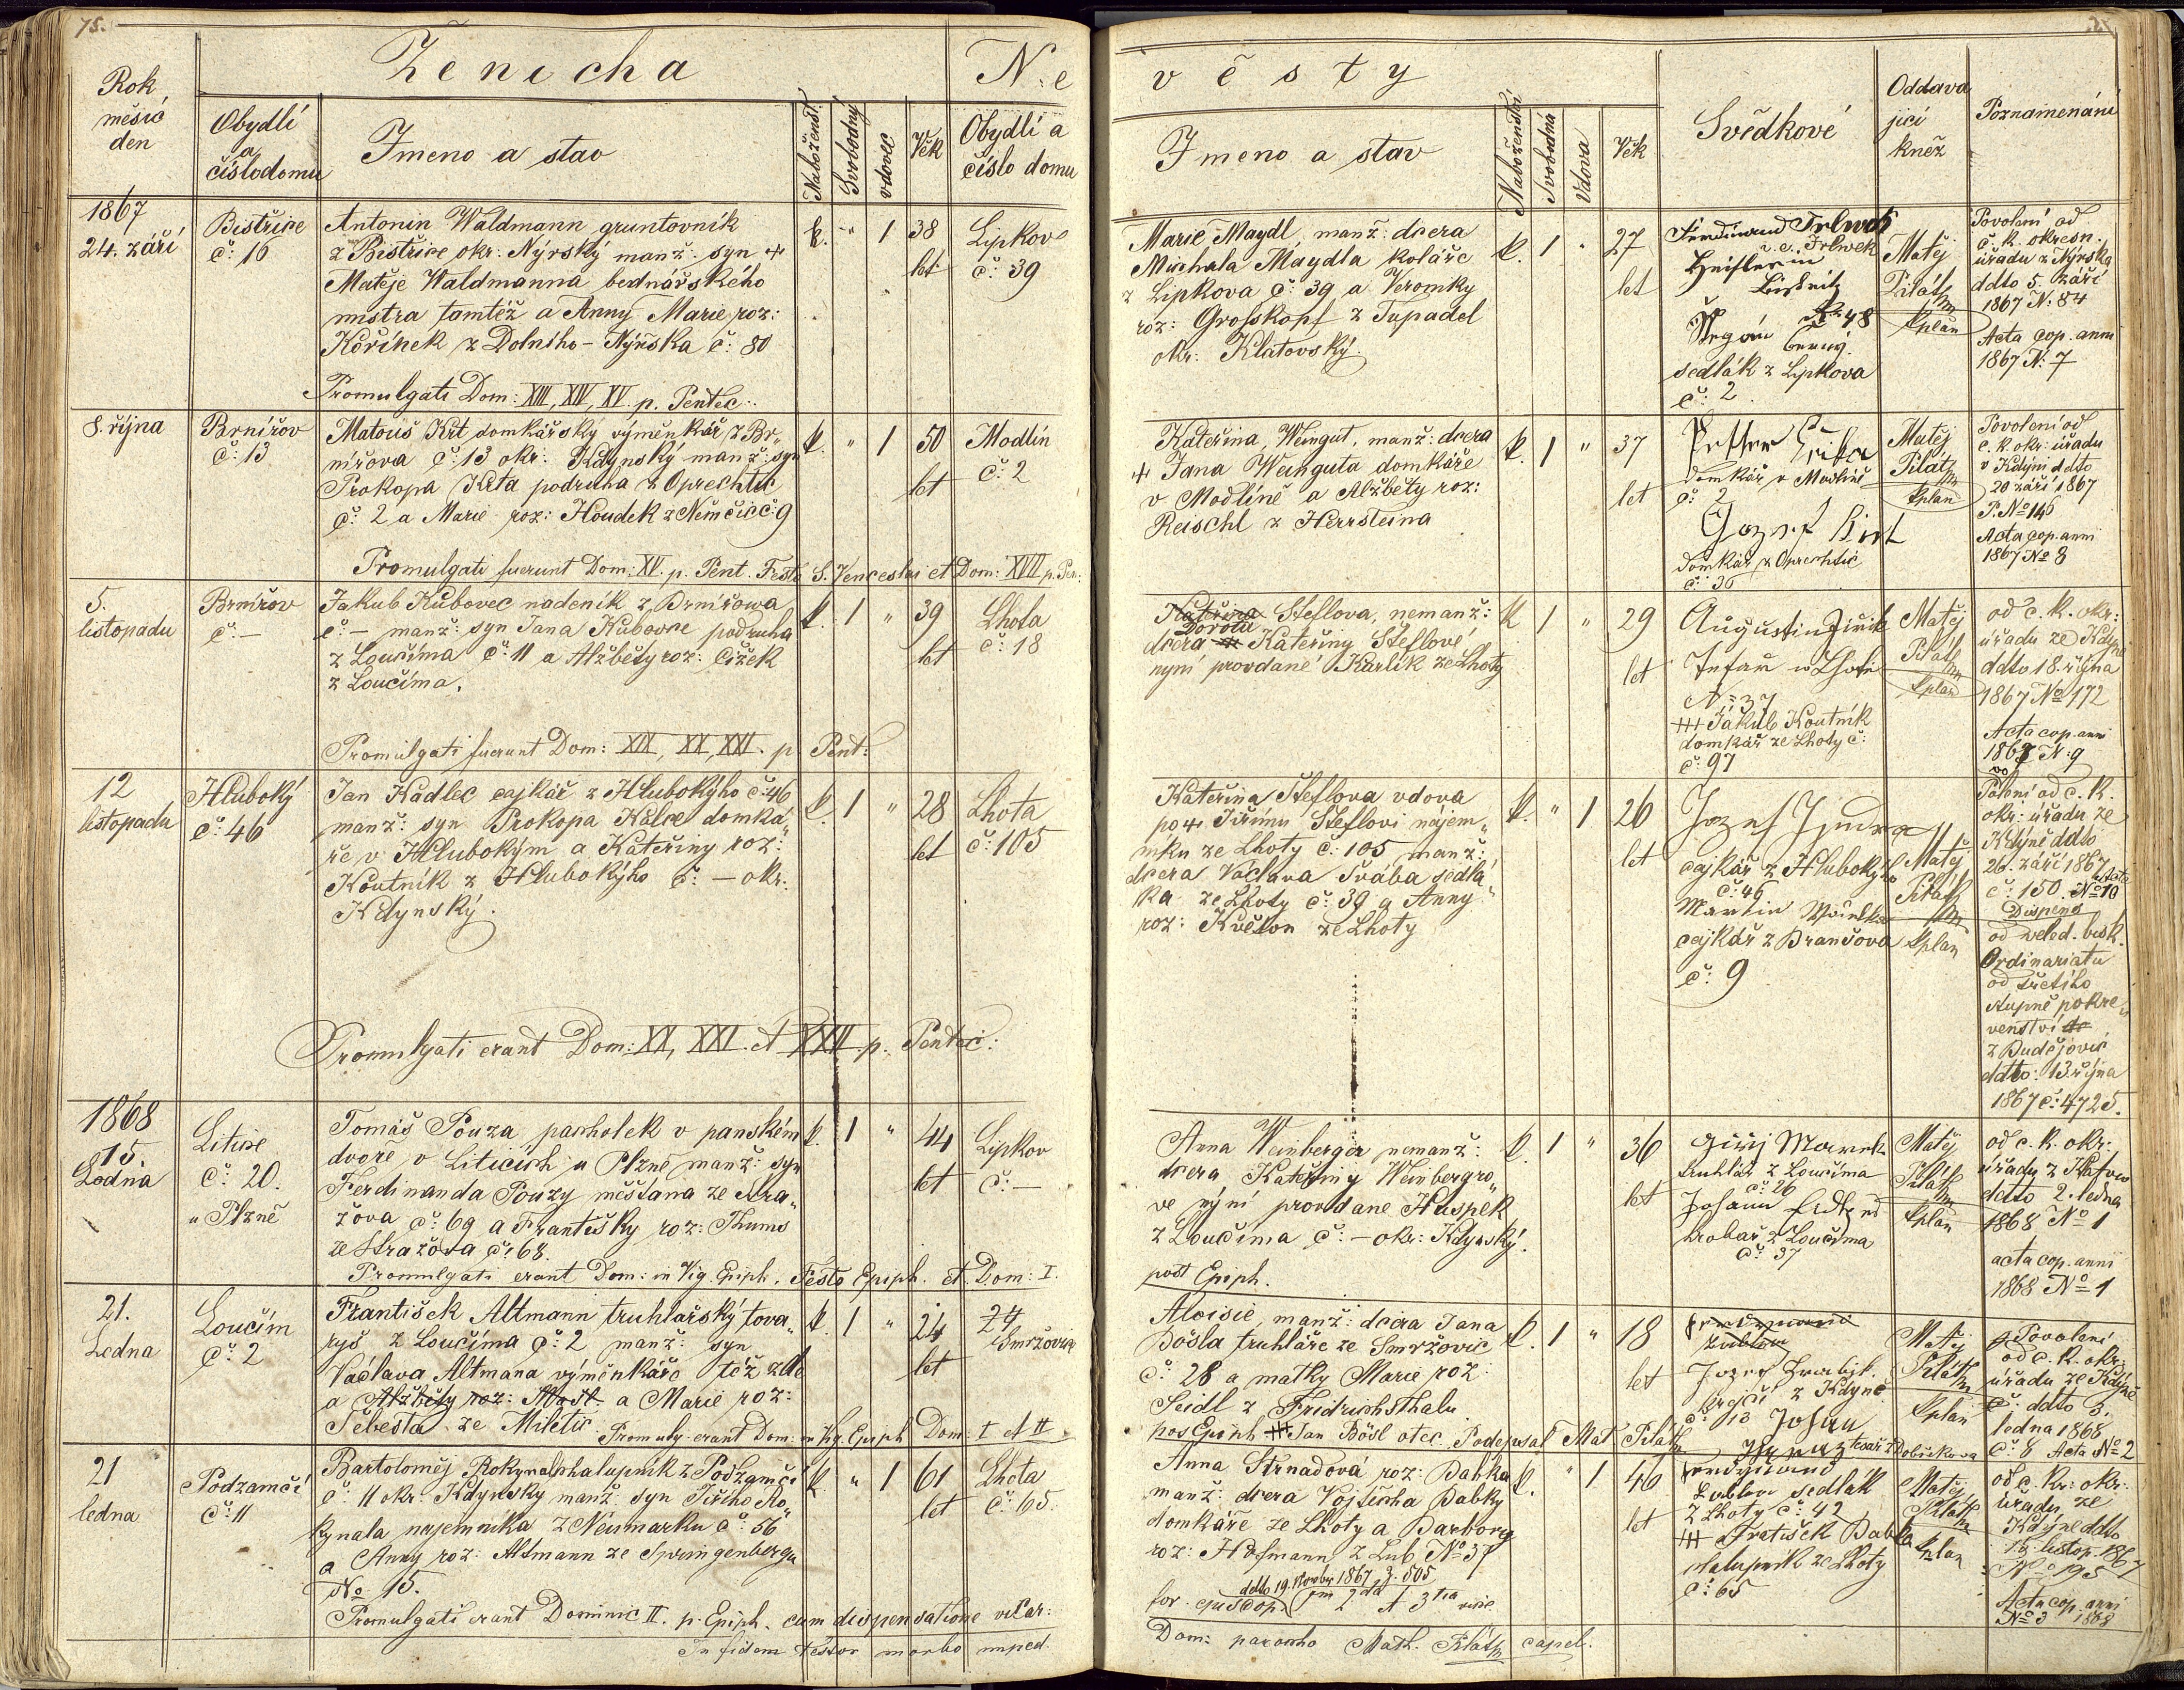 75.
Rok
měsíc
den
Ženicha
Obydlí
a
číslodomu
Jmeno a stav
Naboženst.
Svobodný
vdovec
Věk
N:e
Obydlí a
číslo domu
věsty
Jmeno a stav
Naboženství
Svobodná
Vdova
Věk
Svědkové
Oddava
jící
kněz
Poznamenání
1867
24. září
Bistřice
č: 16
Antonin Waldmann gruntovník
z Bistrice okr: Nýrský manž: syn +
Matěje Waldmanna bednářského
mistra tamtéž a Anny Marie roz:
Kořínek z Dolního-Nýrska č: 80
Promulgati Dom: XIII, XIV, XV. p. Pentec:
k. " 1
38
let
Lipkov
č: 39
Marie Maydl, manž: dcera
Michala Maydla koláře
z Lipkova č: 39 a Veroniky
roz: Grosskopf z Tupadel
okr: Klatovský.
k. 1 "
27
let
Ferdinand
N: 48
sedlák z Lipkova
č: 2.
Matěj
Pilát
kplan
Povolení od
c. k. okresn.
úřadu z Nýrska
ddto 5. září
1867 N: 84
Acta cop. anni
1867 N: 7
8. října
Brnířov
č: 13
Matouš Krt domkářský výměnkář z Br„
nířova č: 13 okr: Kdynský manž: syn
Prokopa Krta podruha z Oprechtic
č: 2 a Marie roz: Houdek z Němčic č: 9
Promulgati fuerunt Dom: XV. p. Pent. Festo S. Venceslai et Dom: XVII p. Pen:
k. " 1
50
let
Modlín
č: 2
Kateřina, Weingut, manž: dcera
+ Jana Weinguta domkáře
v Modlíně a Alžběty roz:
Reischl z Herrsteina
k. 1 "
37
let
domkář v Modlíně
č: 2
Jozef Kirt
domkář z Oprechtic
č: 36
Matěj
Pilát
kplan
Povolení od
c. k. okr: úřadu
v Kdýni ddto
20 září 1867
P. No 146
Acta cop. anni
1867 No 8
5.
listopadu
Brnířov
č: —
Jakub Kubovec nadeník z Brnířowa
č: — manž: syn Jana Kubovce podruha
z Loučíma č: 11 a Alžběty roz: Čížek
z Loučíma.
Promulgati fuerunt Dom: XIX, XX, XXI. p. Pent:
k. 1 "
39
let
Lhota
č: 18
Kateřina Steflova, nemanž:
Dorota
dcera Kateřiny Šteflové,
nyní provdané Karlík ze Lhoty
k 1 "
29
let
Augustin Jiřik
N: 37
+++ Jakub Koutník
domkář ze Lhoty č:
č: 97
Matěj
Pilát
kplan
od c. k. okr:
úřadu ze Kdýně
ddto 18. října
1867 No 172
Acta cop. anni
1867 N: 9
12
listopadu
Hluboký
č: 46
Jan Kadlec cajkář z Hlubokýho č: 46
manž: syn Prokopa Kalce domká„
ře v Hlubokým a Kateřiny roz:
Koutník z Hlubokýho č: — okr:
Kdynský.
Promulgati erant Dom: XX, XXI. et XXII p. Pentec:
k. 1 "
28
let
Lhota
č: 105
Kateřina Šteflova vdova
po + Jiřímu Šteflovi nájem„
níku ze Lhoty č: 105 manž:
dcera Václava Švába sedlá„
ka ze Lhoty č: 39 a Anny
roz: Květon ze Lhoty
k. " 1
26
let
cajkář z Hlubokýho
č: 46
Martin
cajkář z Branšova
č: 9
Matěj
Pilát
kplan
Polení od c. k.
okr: úřadu ze
Kdýně ddto
26. září 1867
č: 150. Acta No 10
Dispens
od weled. bisk.
Ordinariatu
od třetího
stupně pokre„
venství
z Budějovic
ddto: 13. října
1867 č: 4725.
1868
15.
Ledna
Litice
č: 20.
u Plzně
Tomáš Pouza pacholek v panském
dvoře v Liticích u Plzně manž: syn
Ferdinanda Pouzy měšťana ze Stra„
žova č: 69 a Františky roz: Thums
ze Stražova č: 68.
Promulgati erant Dom: in Vig. Epiph. Festo Epiph. et Dom: I.
post Epiph.
k. 1 "
44
let
Lipkov
č: —
Anna Weinberger nemanž:
dcera Kateřiny Weinbergro„
ve nýní provdane Huspek
z Loučíma č: — okr: Kdynský.
k. 1 "
36
let
Jiřij Marek
truhlář z Loučíma
č: 26
Johann
z Loučíma
č: 37
Matěj
Pilát
kplan
od c. k. okr:
úřadu z Klatov
ddto 2. ledna
1868 No 1
acta cop. anni
1868 No 1
21.
Ledna
Loučím
č: 2
František Altmann truhlařský tova„
ryš z Loučíma č: 2 manž: syn
Václava Altmana výměnkáře též
a Alžběty roz: a Marie roz:
Šebesta ze Miletic Promulg. erant Dom: in Vig. Epiph Dom: I et II
k. 1 "
24
let
24
Smržovice
Aloisie, manž: dcera Jana
Bösla truhláře ze Smržovic
č: 28 a matky Marie roz:
Seidl z Fridrichsthalu
pos Epiph +++ Jan Bösl otec Podepsal Mat Pilát
k. 1 "
18
let
Jozef
krejčí z Kdyně
č: 13 Johan
Matěj
Pilát
kplan
Povolení
od c. k. okr:
úřadu ze Kdýně
č: ddto 3.
ledna 1868
č: 8 Acta No 2
21
ledna
Podzamčí
č: 11
Bartoloměj Rokynal chalupník z Podzamčí
č: 11 okr: Kdynský manž: syn Jiřího Ro„
kynala najemníka z Neumarku č: 56
a Anny roz: Altmann ze Springenbergu
No 15.
Promulgati erant Dominic II. p. Epiph. cum dispensatione vicar:
k. " 1
61
let
Lhota
č: 65.
Anna Strnadová roz: Babka
manž: dcera Vojtěcha Babky
domkáře ze Lhoty a Barbory
roz: Hofmann z Lub No 37
ddto 19. November 1867 z. 505
k. " 1
46
let
sedlák
z Lhoty č: 42
+++ Fratišek Babka
chalupník ze Lhoty
č: 65
Matěj
Pilát
kplan
od c. kr: okr:
úřadu ze
Kdýně ddto
15 listop. 1867
No 195
Acta cop. anni
No 3 1868
In fidem testor morbo imped.
Dom: parocho Math. Pilát capel.